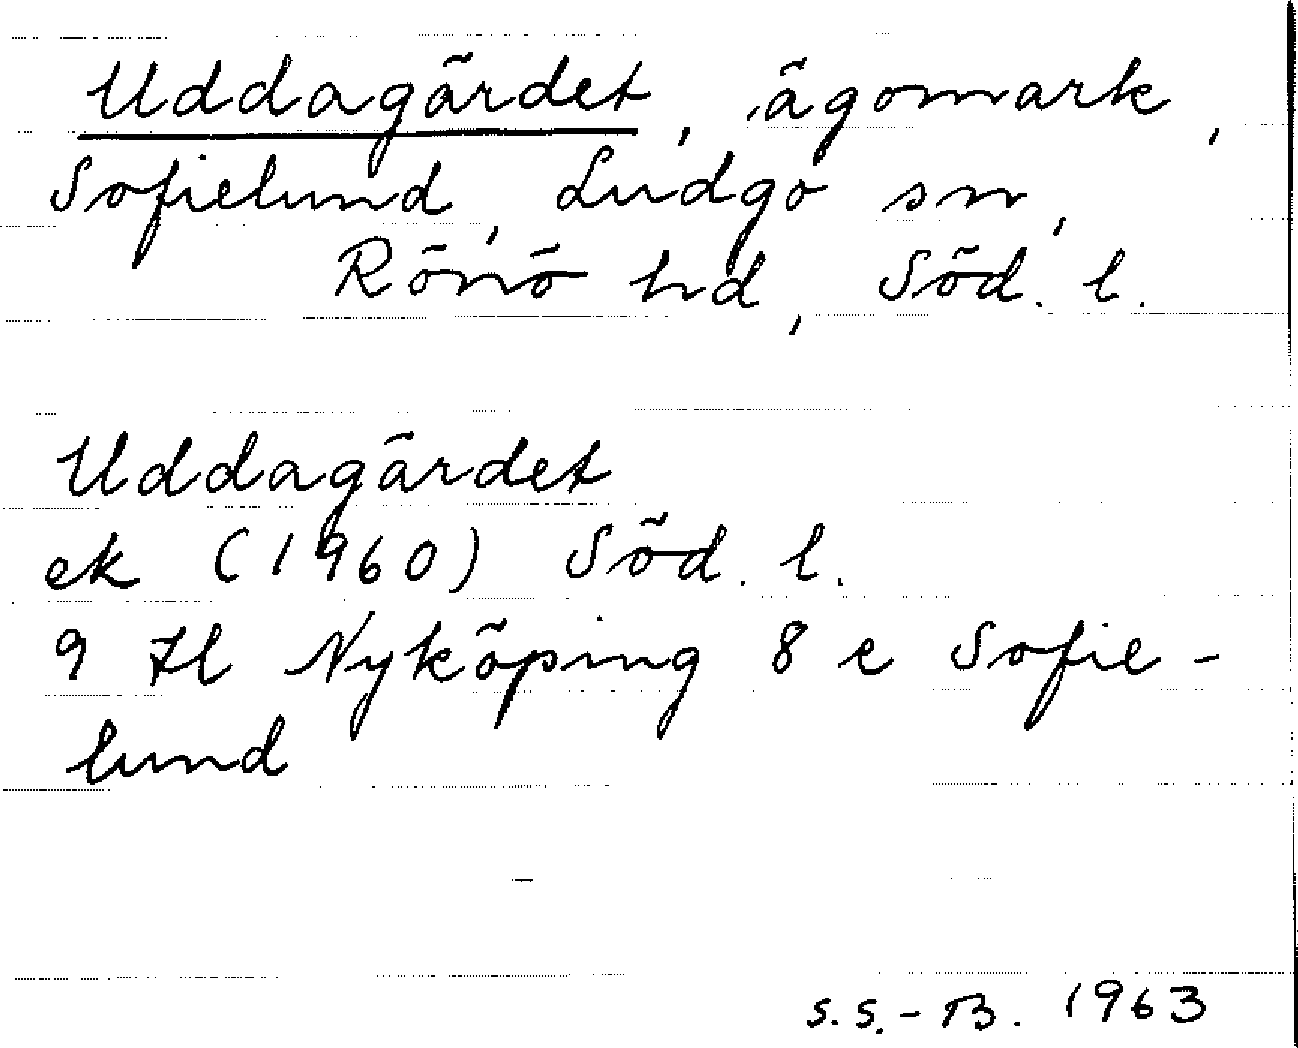 Uddagärdet, ägomark,
Sofielund, Ludgo sn,
Rönö hd, Söd. l.
Uddagärdet
ek (1960) Söd. l.
9 Hl Nyköping 8 e Sofie-
lund
S.S.-B. 1963